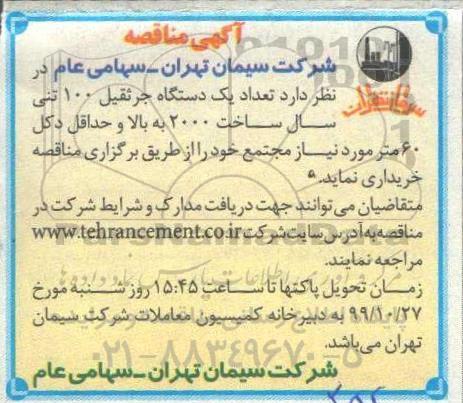 آگهی مناقصه
شرکت سیمان تهران -سهامی عام در
نظر دارد تعداد یک دستگاه جرثقیل ۱۰۰ تنی
سال ساخت ۲۰۰۰ به بالا و حداقل دکل
۶۰ متر مورد نیاز مجتمع خود را از طریق برگزاری مناقصه
خریداری نماید.
متقاضیان می توانند جهت دریافت مدارک و شرایط شرکت در
مناقصه به آدرس سایت شرکت www.tehrancement.co.ir
مراجعه نمایند.
زمان تحویل پاکتها تا ساعت ۱۵:۴۵ روز شنبه مورخ
۹۹/۱۰/۲۷ به دبیرخانه کمیسیون معاملات شرکت سیمان
تهران می باشد.
شرکت سیمان تهران -سهامی عام
سیمان تهران
۰۲۱-۸۸۳۴۹۶۷۰-۵